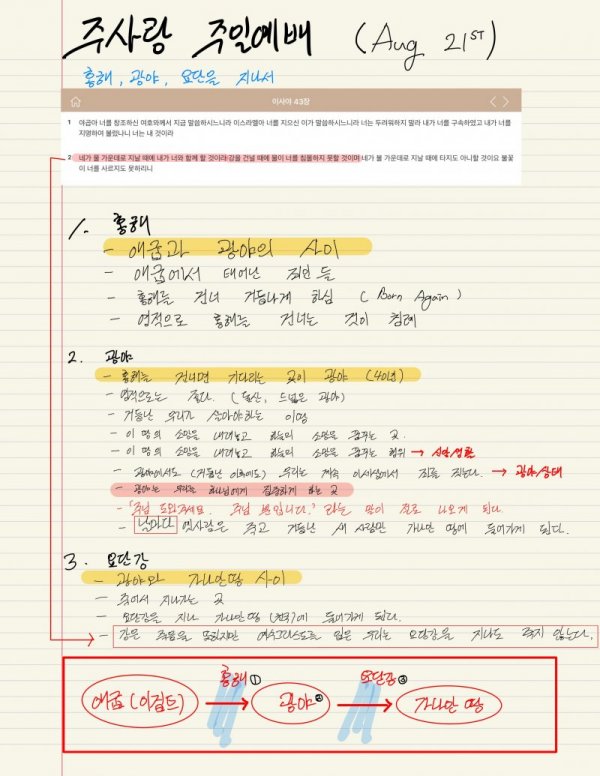 주사랑 주일예배 (Aug 21ST)
홍해, 광야, 요단을 지나서
이사야 43장
1 야곱아 너를 창조하신 여호와께서 지금 말씀하시느니라 이스라엘아 너를 지으신 이가 말씀하시느니라 너는 두려워하지 말라 내가 너를 구속하였고 내가 너를
지명하여 불렀나니 너는 내 것이라
2 네가 물 가운데로 지날 때에 내가 너와 함께 할 것이라 강을 건널 때에 물이 너를 침몰하지 못할 것이며 네가 불 가운데로 지날 때에 타지도 아니할 것이요 불꽃
이 너를 사르지도 못하리니
1. 홍해
- 애굽과 광야의 사이
- 애굽에서 태어난 죄인들
- 홍해를 건너 거듭나게 하심 (Born Again)
- 영적으로 홍해를 건너는 것이 침례
2. 광야
- 홍해를 건너면 기다리는 곳이 광야 (40년)
- 영적으로는 좁다. (돌산, 드넓은 광야)
- 거듭난 우리가 살아야하는 이땅
- 이 땅의 소망을 내려놓고 하늘의 소망을 품는 곳
- 이 땅의 소망을 내려놓고 하늘의 소망을 품는 행위 → 신앙생활
- 광야에서도 (거듭난 이후에도) 우리는 계속 이세상에서 죄를 짓는다. → 광야상태
- 광야는 우리를 하나님에게 집중하게 하는 곳
- "주님 도와주세요. 주님 뿐입니다." 라는 말이 절로 나오게 된다.
- 날마다 옛사람은 죽고 거듭난 새 사람만 가나안 땅에 들어가게 된다.
3. 요단강
- 광야와 가나안땅 사이
- 죽어서 지나가는 곳
- 요단강을 지나 가나안땅 (천국)에 들어가게 된다.
- 강은 죽음을 뜻하지만 예수그리스도를 믿은 우리는 요단강을 지나도 죽지 않는다.
홍해 ① 요단강 ③
애굽 (이집트) → 광야 ② → 가나안 땅